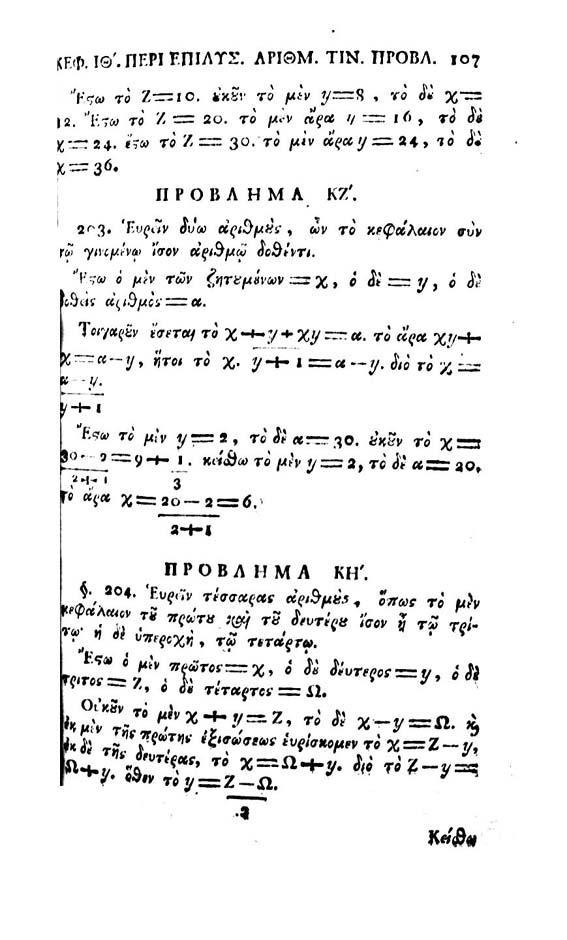 ΚΕΦ. ΙΘ'. ΠΕΡΙ ΕΠΙΛΥΣ. ΑΡΙΘΜ. ΤΙΝ. ΠΡΟΒΛ. 107
Ἔςω τὸ Ζ=10. ὐκοῦν τὸ μὲν y=8, τὸ δὲ χ=
12. Ἔςω τὸ Ζ = 20. τὸ μὲν ἄρα y = 16, τὸ δὲ
χ=24. ἔςω τὸ Ζ= 30. τὸ μὲν ἄρα y=24, τὸ δὲ
χ=36.
ΠΡΟΒΛΗΜΑ ΚΖ'.
203. Ἑυρεῖν δύω ἀριθμοὺς, ὧν τὸ κεφάλαιον σὺν
τῷ γινομένῳ ἴσον ἀριθμῷ δοθέντι.
Ἔςω ὁ μὲν τῶν ζητουμένων=χ, ὁ δὲ=y, ὁ δὲ
δοθεὶς ἀριθμὸς=α.
Τοιγαροῦν ἔσεται τὸ χ+y+χy=α. τὸ ἄρα χy+
χ=α-y, ἤτοι τὸ χ. y+1=α-y. διὸ τὸ χ=
α-y.
y+1
Ἔςω τὸ μὲν y=2, τὸ δὲ α=30. ὐκοῦν τὸ χ=
30-2=9+1. κείσθω τὸ μὲν y=2, τὸ δὲ α=20.
2+1 3
τὸ ἄρα χ=20-2=6.
2+1
ΠΡΟΒΛΗΜΑ ΚΗ'.
§. 204. Ἑυρεῖν τέσσαρας ἀριθμοὺς, ὅπως τὸ μὲν
κεφάλαιον τοῦ πρώτου καὶ τοῦ δευτέρου ἴσον ᾖ τῷ τρί-
τῳ· ἡ δὲ ὑπεροχὴ, τῷ τετάρτῳ.
Ἔςω ὁ μὲν πρῶτος=χ, ὁ δὲ δεύτερος=y, ὁ δὲ
τρίτος=Ζ, ὁ δὲ τέταρτος=Ω.
Οὐκοῦν τὸ μὲν χ+y=Ζ, τὸ δὲ χ-y=Ω. καὶ
ἐκ μὲν τῆς πρώτης ἐξισώσεως ἑυρίσκομεν τὸ χ=Ζ-y,
ἐκ δὲ τῆς δευτέρας, τὸ χ=Ω+y. διὸ τὸ Ζ-y=
Ω+y. ὅθεν τὸ y=Ζ-Ω.
2
Κείσθω